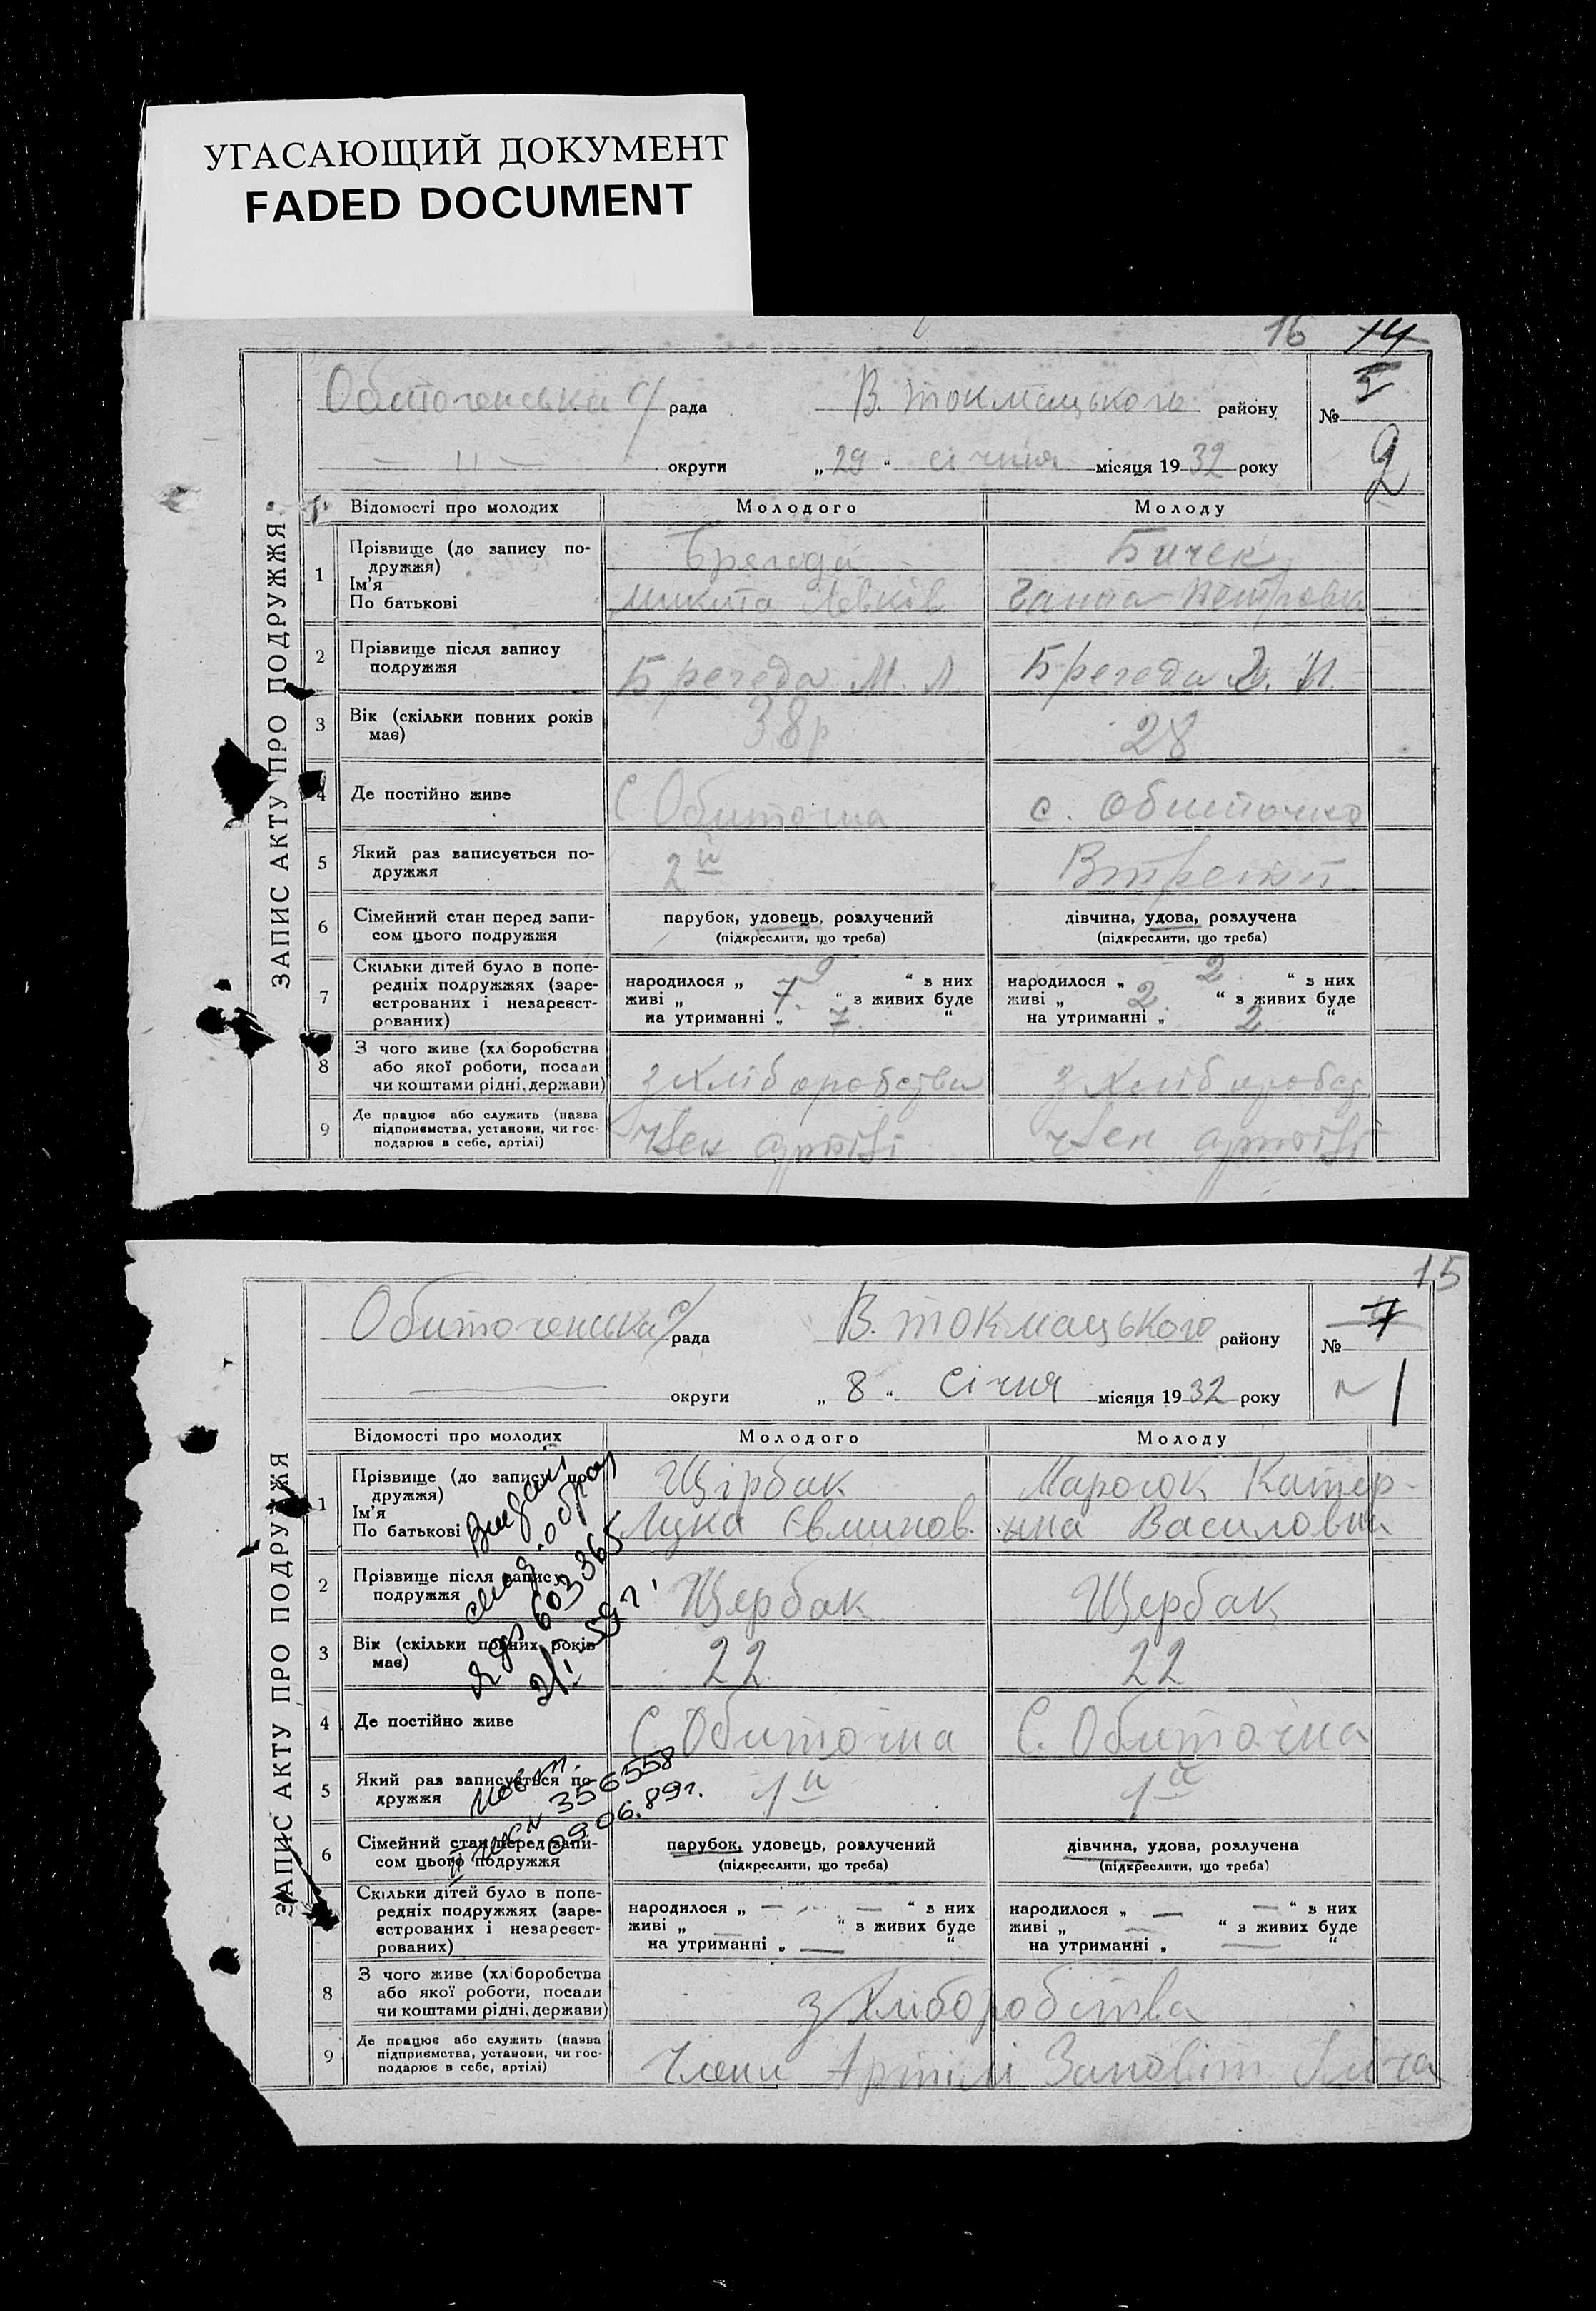 УГАСАЮЩИЙ ДОКУМЕНТ
FADED DOCUMENT
16 14
ЗАПИС АКТУ ПРО ПОДРУЖЖЯ
Обиточенська с/ рада В. Токмацького району № 5
— " — округи „ 29 “ січня місяця 1932 року 2
Відомості про молодих Молодого Молоду
1 Прізвище (до запису по-
дружжя)
Ім’я
По батькові
Брегеда Бичек
Микита Левків Ганна Петровна
2 Прізвище після запису
подружжя
Брегеда М. Л. Брегеда
3 Вік (скільки повних років
має)
38р 28
4 Де постійно живе
С Обиточна с. Обиточна
5 Який раз записується по-
дружжя
2й Втретій
6 Сімейний стан перед запи-
сом цього подружжя
парубок, удовець, розлучений дівчина, удова, розлучена
(підкреслити, що треба) (підкреслити, що треба)
7 Скільки дітей було в попе-
редніх подружжях (заре-
єстрованих і незареєст-
рованих)
народилося „ 9 “ з них народилося „ 2 “ з них
живі „ 7. “ з живих буде живі „ 2. “ з живих буде
на утриманні „ 7. “ на утриманні „ 2 “
8 З чого живе (хліборобства
або якої роботи, посади
чи коштами рідні, держави)
з хліборобства з хлібороб
9 Де працює або служить (назва
підприємства, установи, чи гос-
подарює в себе, артілі)
член артілі член артілі
15
ЗАПИС АКТУ ПРО ПОДРУЖЖЯ
Обиточенська с/ рада В. Токмацького району № 4
округи „ 8 “ Січня місяця 1932 року 1
Відомості про молодих Молодого Молоду
1 Прізвище (до запису по-
дружжя)
Ім’я
По батькові
Щірбак Марогок Катер-
Лука Євминов. ина Василовна
2 Прізвище після запису
подружжя
Щербак Щербак
3 Вік (скільки повних років
має)
22 22
4 Де постійно живе
С. Обиточна С. Обиточна
5 Який раз записується по-
дружжя
1й 1й
6 Сімейний стан перед запи-
сом цього подружжя
парубок, удовець, розлучений дівчина, удова, розлучена
(підкреслити, що треба) (підкреслити, що треба)
Скільки дітей було в попе-
редніх подружжях (заре-
єстрованих і незареєст-
рованих)
народилося „ — — “ з них народилося „ — — “ з них
живі „ — “ з живих буде живі „ — “ з живих буде
на утриманні „ — “ на утриманні „ — “
8 З чого живе (хліборобства
або якої роботи, посади
чи коштами рідні, держави)
з Хліборобства
9 Де працює або служить (назва
підприємства, установи, чи гос-
подарює в себе, артілі)
Члени Артілі Заповіт Ілліча
603365
59 г.
повт.
356558
09.06.89г.